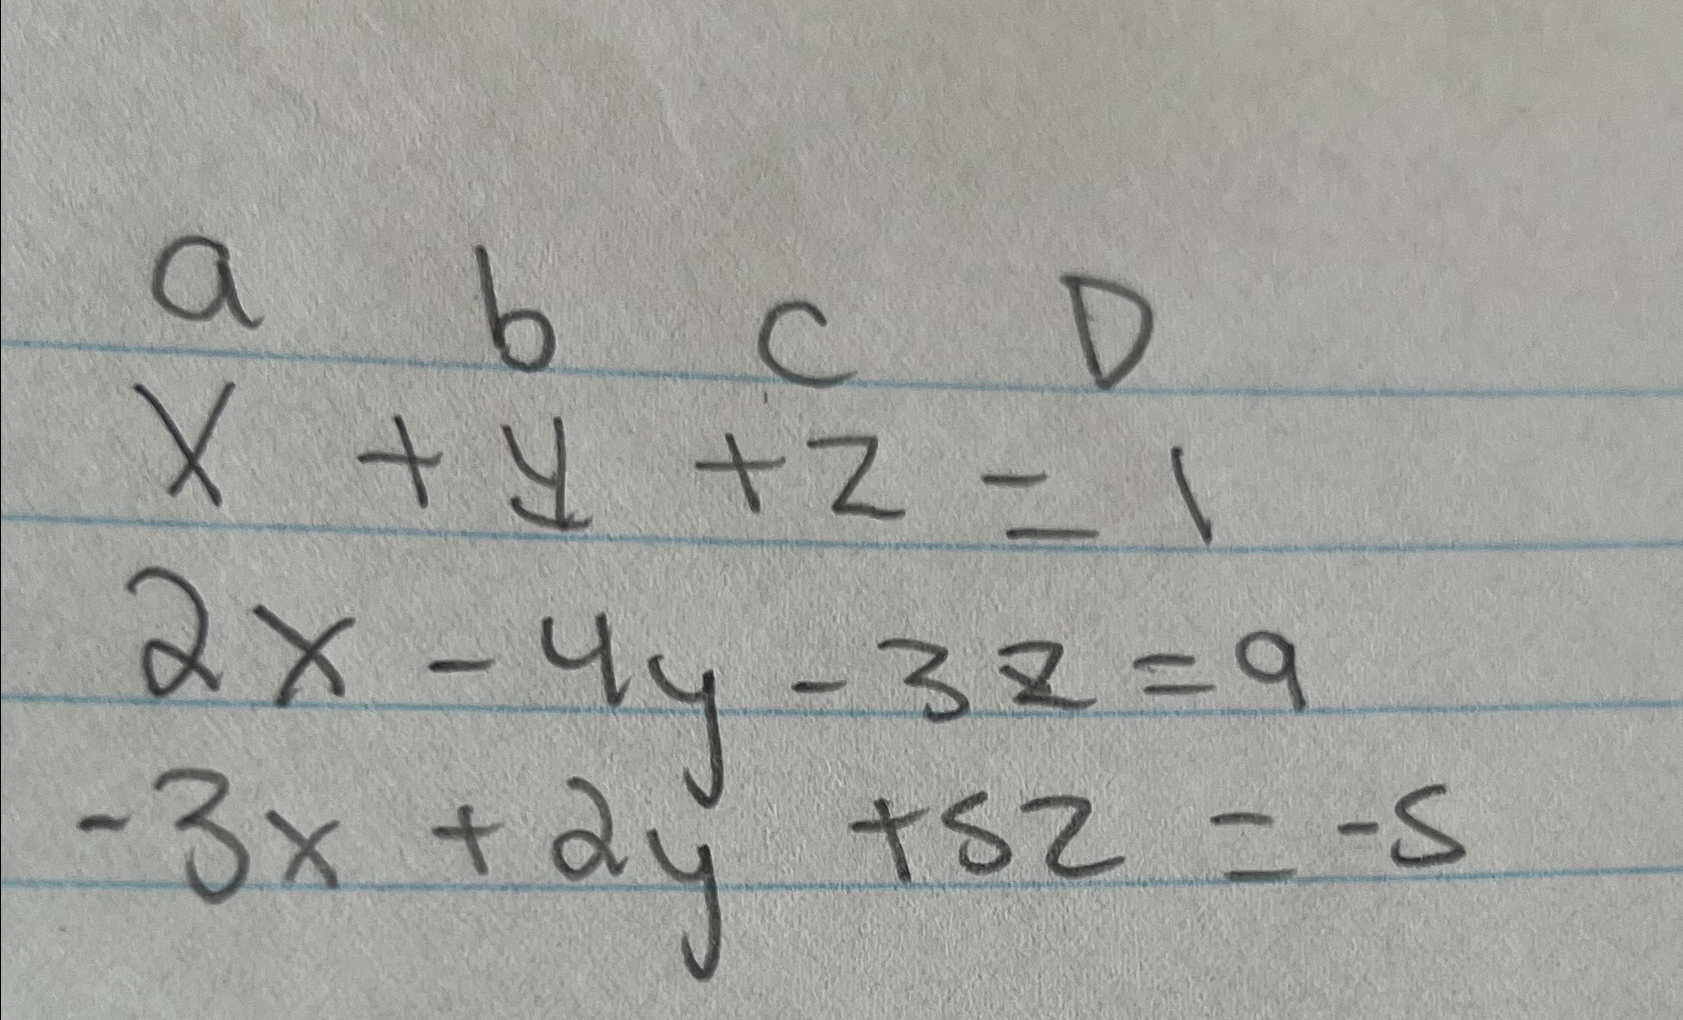 a b c D
x + y + z = 1
2x - 4y - 3z = 9
-3x + 2y + 5z = -5